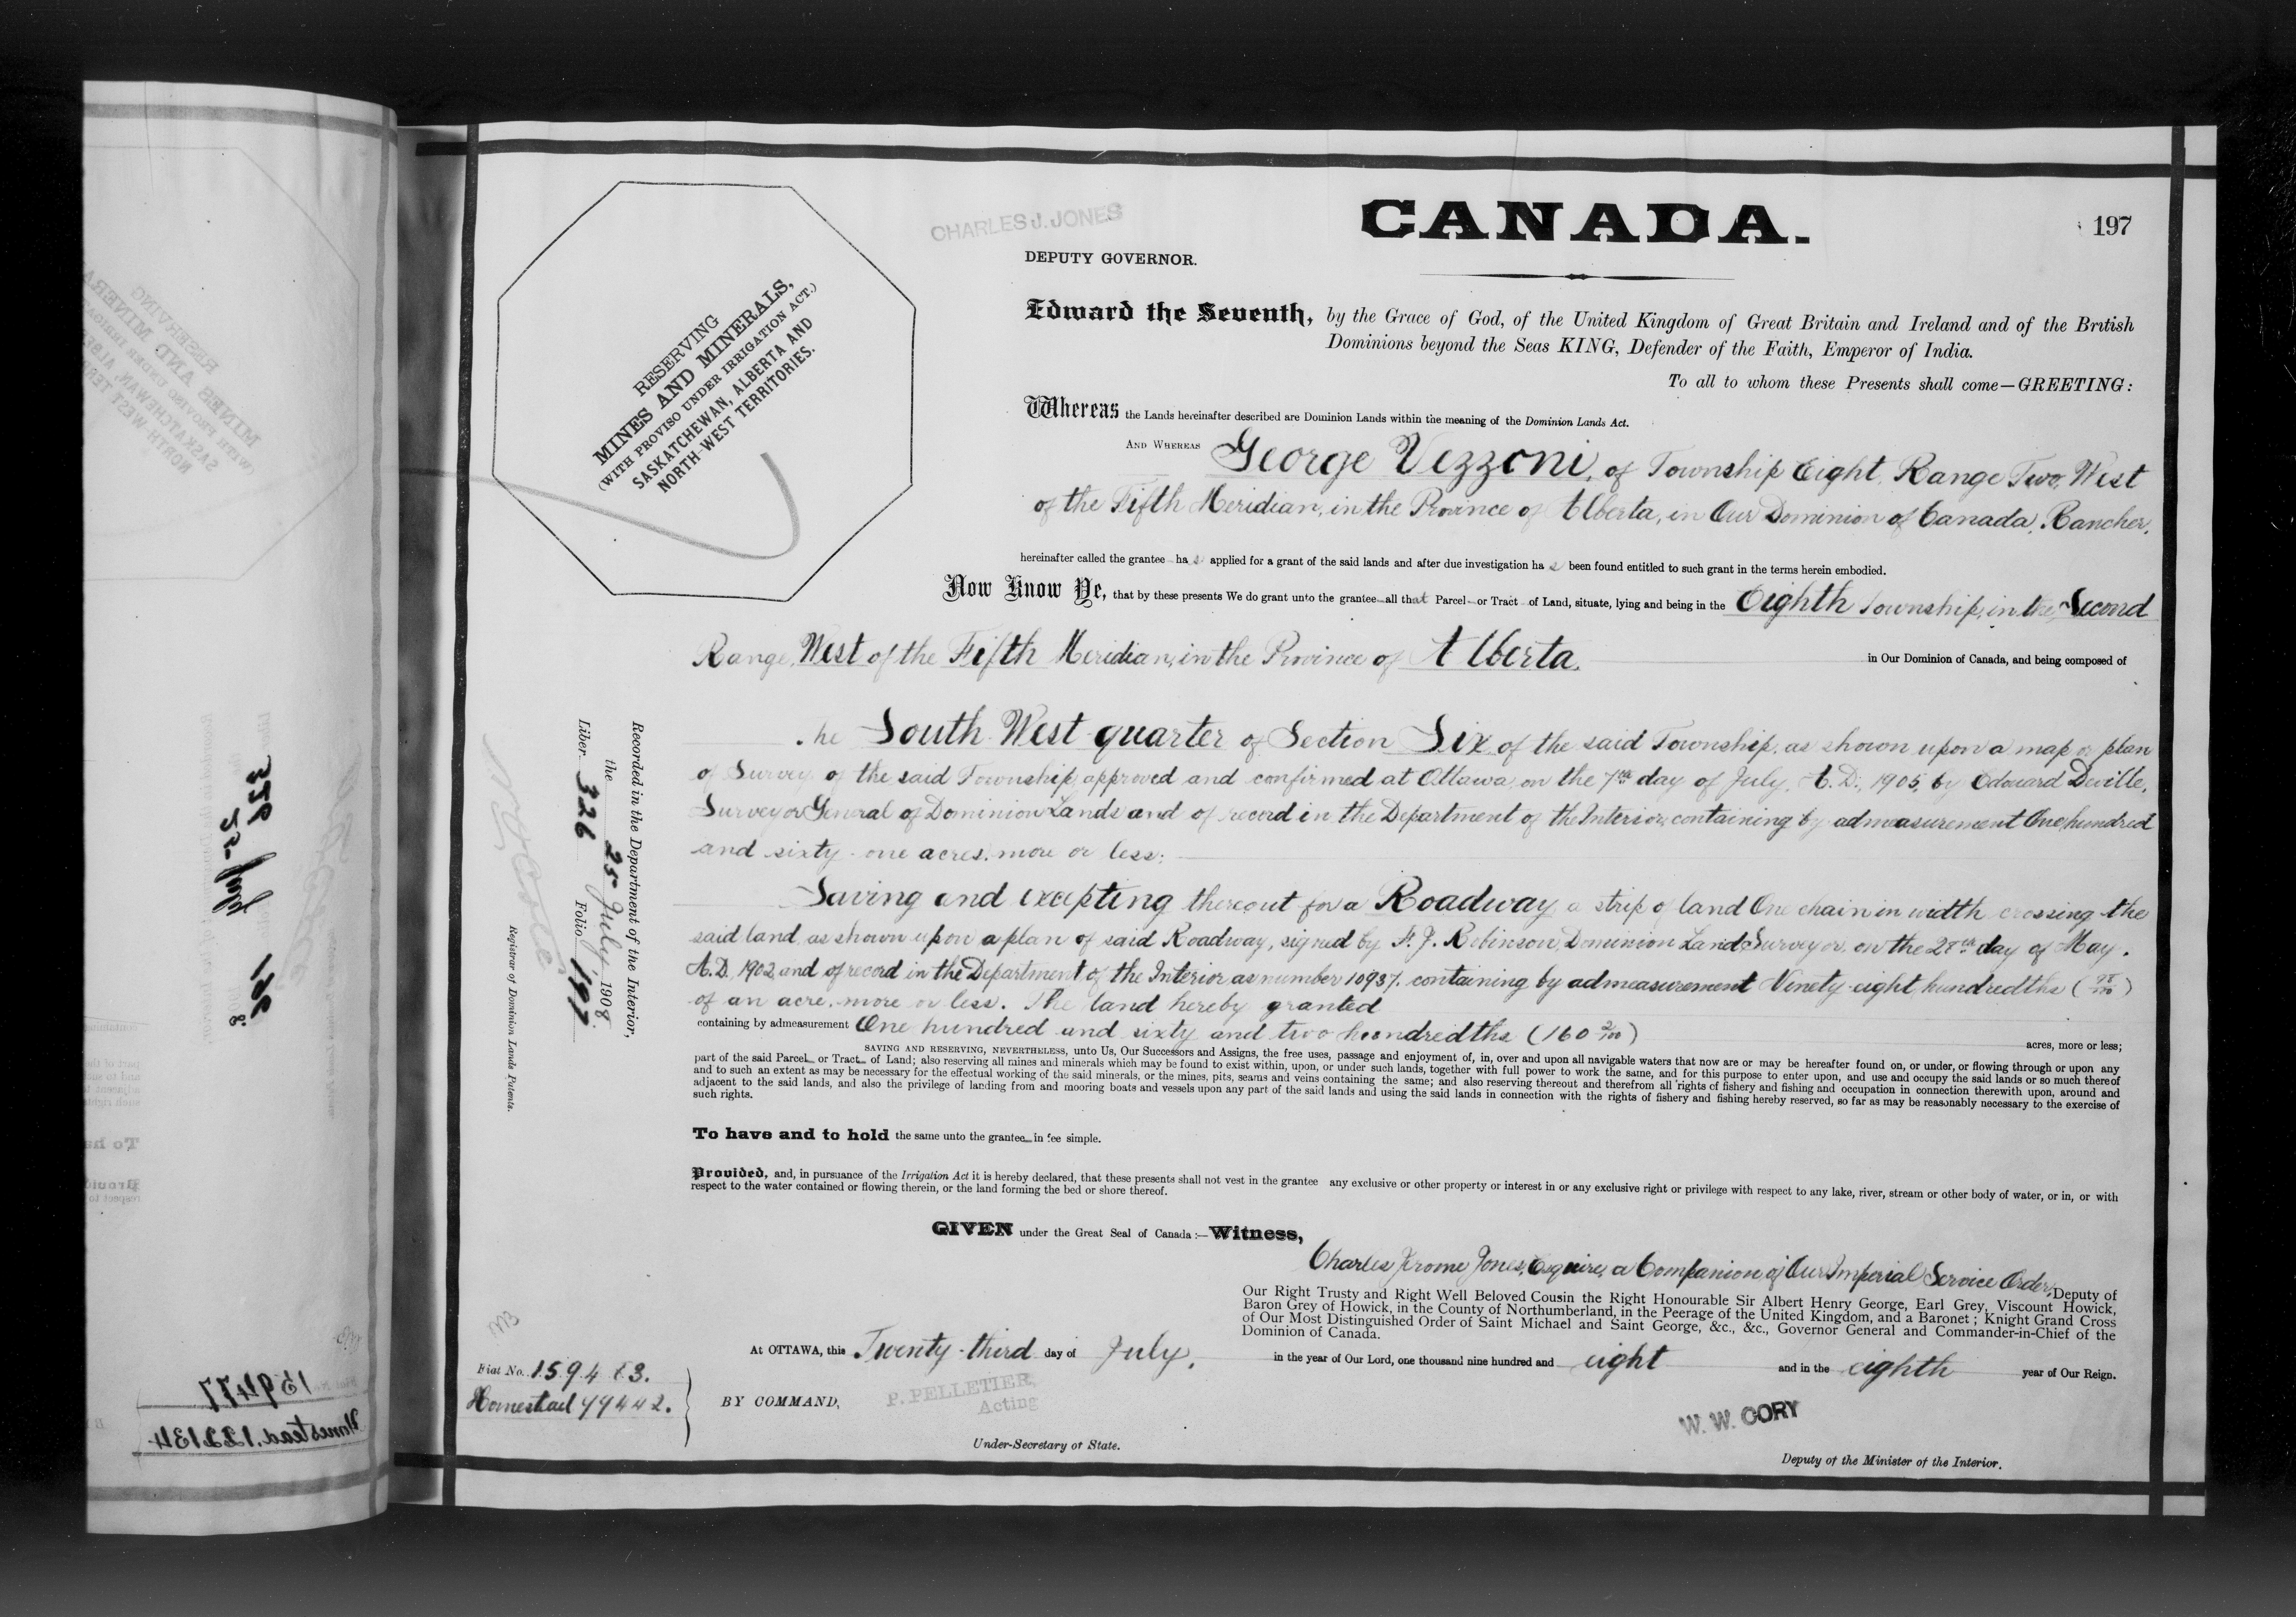 CHARLES J. JONES
CANADA.
197
DEPUTY GOVERNOR.
RESERVING
MINES AND MINERALS,
(WITH PROVISO UNDER IRRIGATION ACT.)
SASKATCHEWAN, ALBERTA AND
NORTH-WEST TERRITORIES.
Edward the Seventh, by the Grace of God, of the United Kingdom of Great Britain and Ireland and of the British
Dominions beyond the Seas KING, Defender of the Faith, Emperor of India.
To all to whom these Presents shall come—GREETING:
Whereas the Lands hereinafter described are Dominion Lands within the meaning of the Dominion Lands Act.
AND WHEREAS George Vezzoni, of Township Eight, Range Two, West
of the Fifth Meridian, in the Province of Alberta, in Our Dominion of Canada, Rancher,
hereinafter called the grantee has applied for a grant of the said lands and after due investigation has been found entitled to such grant in the terms herein embodied.
Now Know Ye, that by these presents We do grant unto the grantee all that Parcel or Tract of Land, situate, lying and being in the Eighth Township, in the Second
Range, West of the Fifth Meridian, in the Province of Alberta, in Our Dominion of Canada, and being composed of
he South West quarter of Section Six of the said Township, as shown upon a map or plan
of Survey of the said Township, approved and confirmed at Ottawa, on the 7th day of July, A.D., 1905, by Edouard Deville,
Surveyor General of Dominion Lands and of record in the Department of the Interior, containing by admeasurement One hundred
and sixty-one acres, more or less:
Saving and excepting thereout for a Roadway a strip of land One chain in width crossing the
said land, as shown upon a plan of said Roadway, signed by F. J. Robinson, Dominion Land Surveyor, on the 28th day of May,
A.D., 1902, and of record in the Department of the Interior as number 10937, containing by admeasurement Ninety-eight hundredths (98/100)
of an acre, more or less. The land hereby granted
containing by admeasurement One hundred and sixty and two hundredths (160 2/100) acres, more or less;
SAVING AND RESERVING, NEVERTHELESS, unto Us, Our Successors and Assigns, the free uses, passage and enjoyment of, in, over and upon all navigable waters that now are or may be hereafter found on, or under, or flowing through or upon any
part of the said Parcel or Tract of Land; also reserving all mines and minerals which may be found to exist within, upon, or under such lands, together with full power to work the same, and for this purpose to enter upon, and use and occupy the said lands or so much thereof
and to such an extent as may be necessary for the effectual working of the said minerals, or the mines, pits, seams and veins containing the same; and also reserving thereout and therefrom all rights of fishery and fishing and occupation in connection therewith upon, around and
adjacent to the said lands, and also the privilege of landing from and mooring boats and vessels upon any part of the said lands and using the said lands in connection with the rights of fishery and fishing hereby reserved, so far as may be reasonably necessary to the exercise of
such rights.
To have and to hold the same unto the grantee in fee simple.
Provided, and, in pursuance of the Irrigation Act it is hereby declared, that these presents shall not vest in the grantee any exclusive or other property or interest in or any exclusive right or privilege with respect to any lake, river, stream or other body of water, or in, or with
respect to the water contained or flowing therein, or the land forming the bed or shore thereof.
GIVEN under the Great Seal of Canada:—Witness,
Charles Jerome Jones, Esquire, a Companion of Our Imperial Service Order, Deputy of
Our Right Trusty and Right Well Beloved Cousin the Right Honourable Sir Albert Henry George, Earl Grey, Viscount Howick,
Baron Grey of Howick, in the County of Northumberland, in the Peerage of the United Kingdom, and a Baronet; Knight Grand Cross
of Our Most Distinguished Order of Saint Michael and Saint George, &c., &c., Governor General and Commander-in-Chief of the
Dominion of Canada.
At OTTAWA, this Twenty-third day of July, in the year of Our Lord, one thousand nine hundred and eight and in the eighth year of Our Reign.
BY COMMAND,
P. PELLETIER,
Acting
Under-Secretary of State.
W. W. CORY
Deputy of the Minister of the Interior.
Fiat No. 159483.
Homestead 99442.
Recorded in the Department of the Interior,
the 25 July, 1908
Liber 326 Folio 197
Registrar of Dominion Lands Patents.
159477
Homestead. 122134